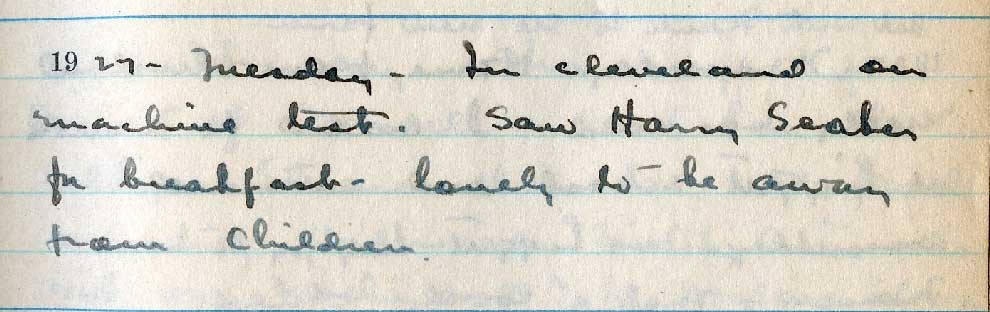 1927 - Tuesday - In cleveland on
machine test. Saw Harry
for breakfast - lonely to be away
from children.